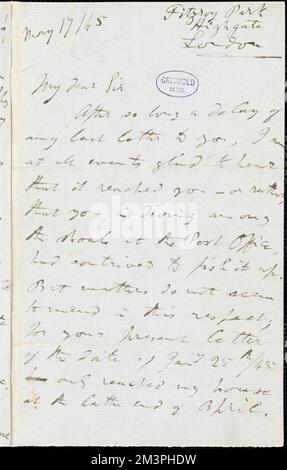 May 17/45
Fitzroy Park
Highgate
London
GRISWOLD
MSS.
My dear Sir
After so long a delay of
my last letter to you, I am
at all events glad to hear
that it reached you – or rather
that you in diving among
the shoals at the Post Office,
had contrived to fish it up.
But matters do not seem
to mend in this respect;
for your present letter
of the date of Jany 25th/45
only reached my house
at the latter end of April.
alamy
Image ID: 2M3PHDW
www.alamy.com